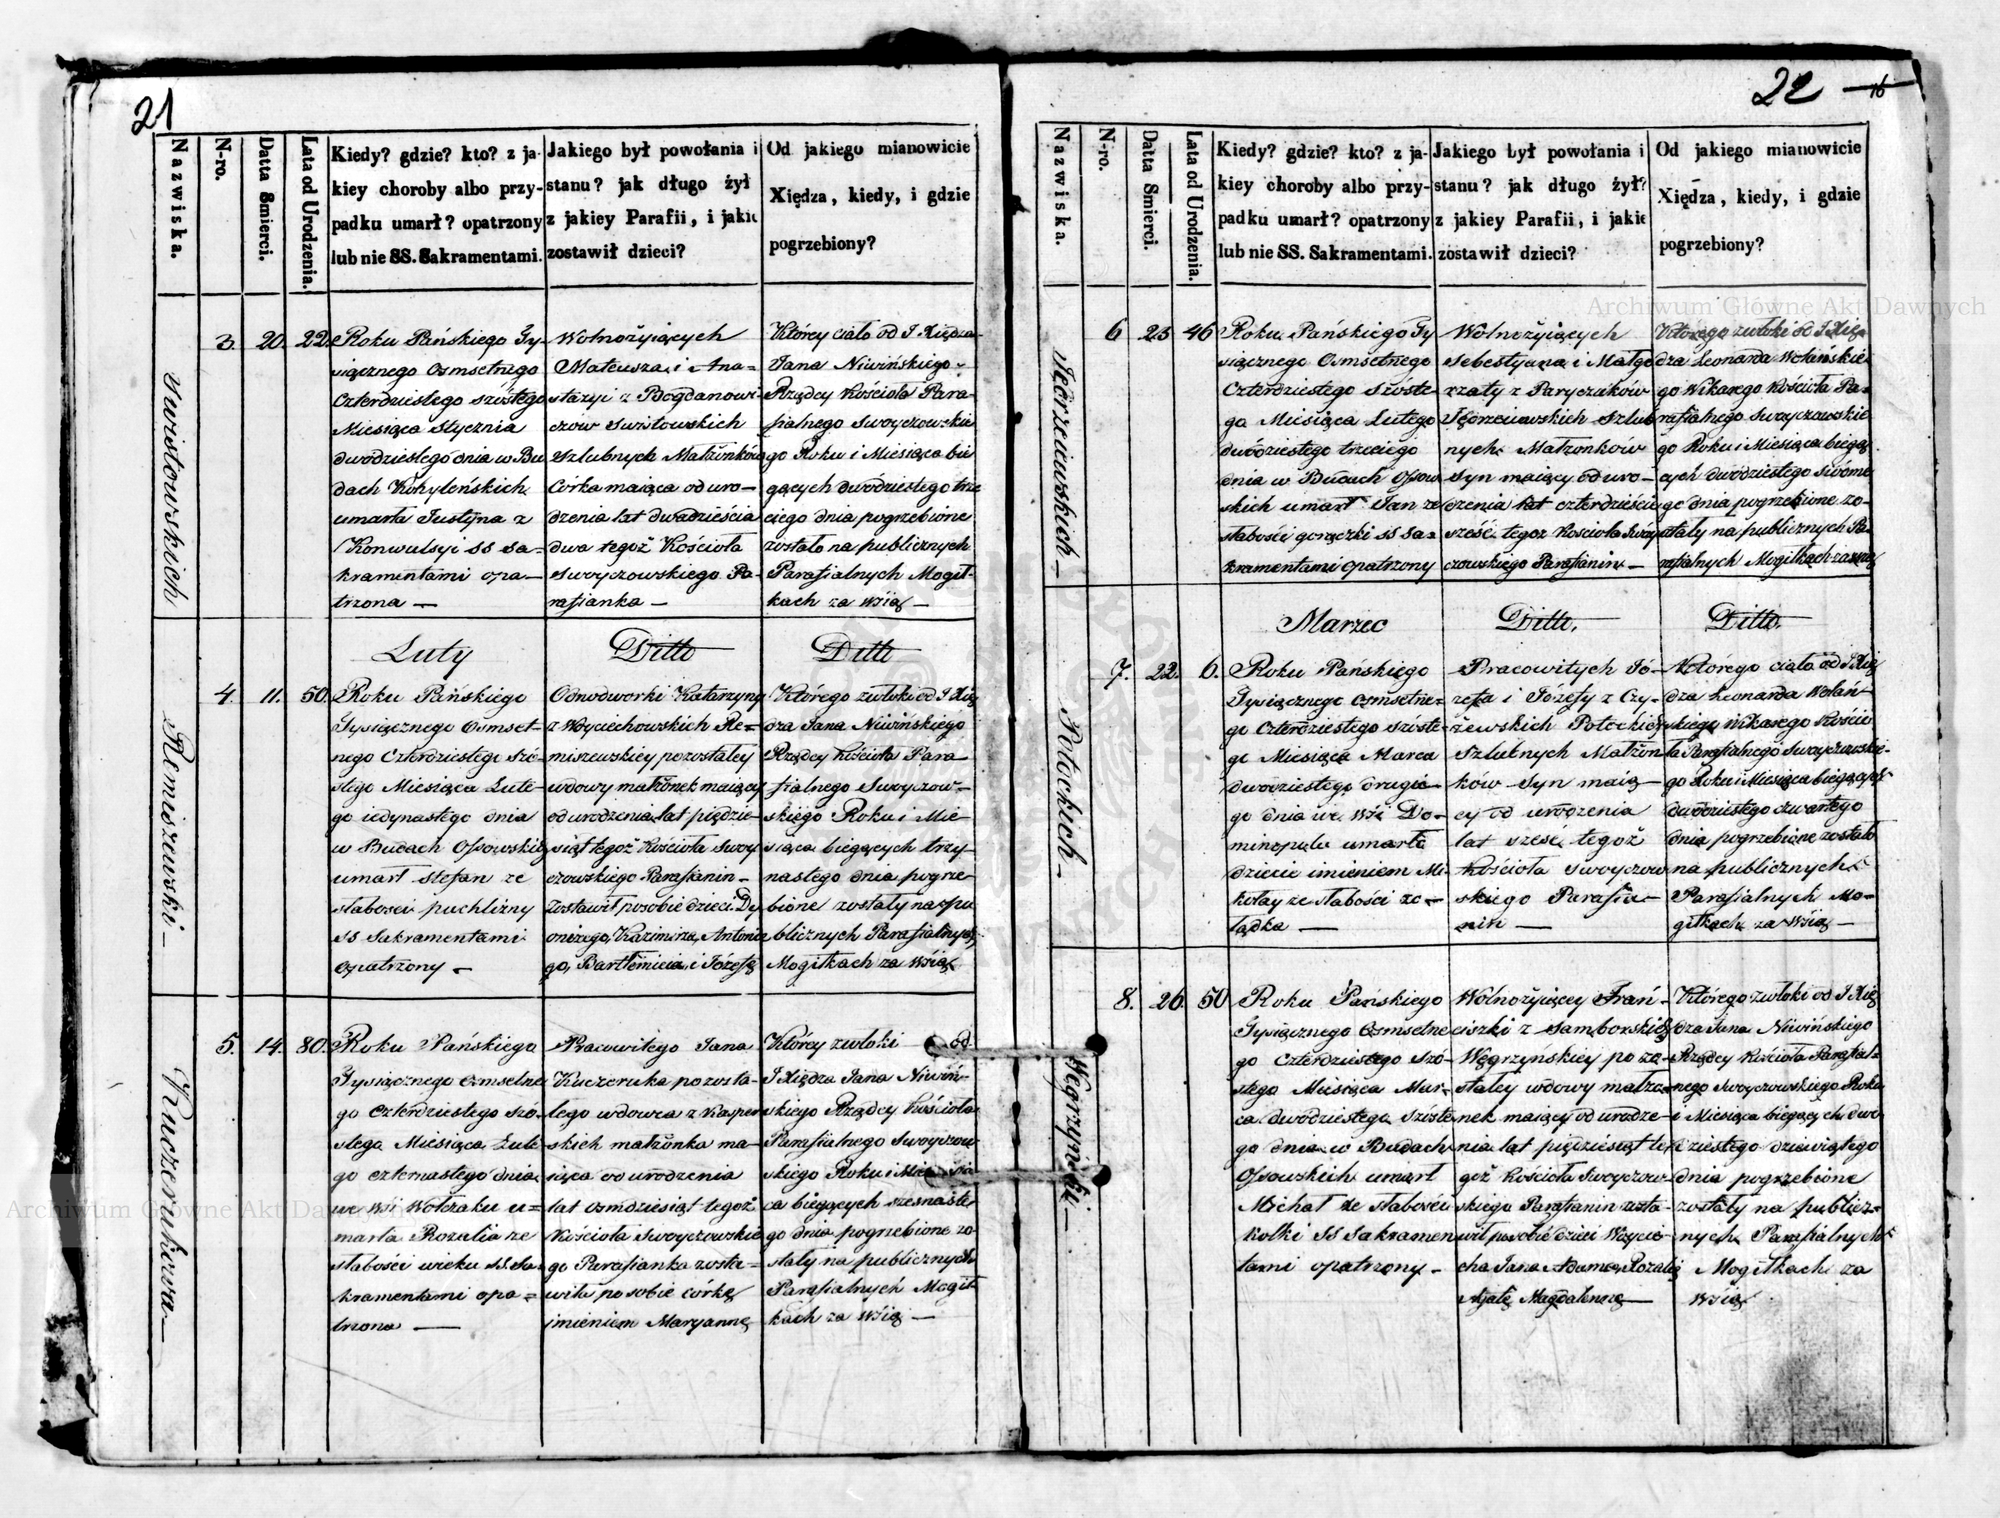 21
Nazwiska.
N-ro.
Datta Smierci.
Lata od Urodzenia.
Kiedy? gdzie? kto? z ja-
kiey choroby albo przy-
padku umarł? opatrzony
lub nie SS. Sakramentami.
Jakiego był powołania i
stanu? jak długo żył
z jakiey Parafii, i jakie
zostawił dzieci?
Od jakiego mianowicie
Xiędza, kiedy, i gdzie
pogrzebiony?
Swistowskich
3. 20. 22.
Roku Pańskiego Ty-
siącznego Osmsetnego
Czterdziestego szóstego
Miesiąca Stycznia
dwódziestego dnia w Bu
dach Kobyleńskich
umarła Justyna z
Konwulsyi SS Sa-
kramentami opa-
trzona —
Wolnożyiących
Mateusza i Ana-
stazyi z Bogdanowi-
czow Swistowskich
Szlubnych Małżonków
Córka maiąca od uro-
dzenia lat dwadzieścia
dwa tegoż Kościoła
Swoyczowskiego Pa-
rafianka —
Którey ciało od J Xiędza
Jana Niwińskiego
Rządcy Kościoła Para-
fialnego Swoyczowskie
go Roku i Miesiąca bie
gących dwódziestego trze
ciego dnia pogrzebione
zostało na publicznych
Parafialnych Mogił-
kach za wsią —
Luty
Ditto
Ditto
Remiszewski —
4. 11. 50.
Roku Pańskiego
Tysiącznego Osmset-
nego Czterdziestego szó-
stego Miesiąca Lute-
go iedynastego dnia
w Budach Ossowskich
umarł Stefan ze
słabości puchliny
SS Sakramentami
opatrzony —
Odnodworki Katarzyny
z Woyciechowskich Re-
miszewskiey pozostałey
wdowy małżonek maiący
od urodzenia lat pięćdzie-
siąt tegoż Kościoła Swoy
czowskiego Parafianin —
Zostawił po sobie dzieci: Dy
onizego, Kazimirza, Antonie
go, Bartłemieia i Józefę
Którego zwłoki od J Xię
dza Jana Niwińskiego
Rządcy Kościoła Para
fialnego Swoyczow-
skiego Roku i Mie-
siąca biegących trzy-
nastego dnia pogrze-
bione zostały na pu
blicznych Parafialnych
Mogiłkach za wsią
Kuczerukowa —
5. 14. 80.
Roku Pańskiego
Tysiącznego Osmsetne
go Czterdziestego szó-
stego Miesiąca Lute
go czternastego dnia
we wsi Wołczaku u-
marła Rozalia ze
słabości wieku SS. Sa-
kramentami opa-
trzona —
Pracowitego Jana
Kuczeruka pozosta-
łego wdowca z Kasper
skich małżonka ma-
iąca od urodzenia
lat osmdziesiąt tegoż
Kościoła Swoyczowskie
go Parafianka zosta-
wiła po sobie córkę
imieniem Maryannę
Którey zwłoki od
J Xiędza Jana Niwiń-
skiego Rządcy Kościoła
Parafialnego Swoyczow
skiego Roku i Miesią
ca biegących szesnaste
go dnia pogrzebione zo
stały na publicznych
Parafialnych Mogił
kach za wsią —
22 16
Nazwiska.
N-ro.
Datta Smierci.
Lata od Urodzenia.
Kiedy? gdzie? kto? z ja-
kiey choroby albo przy-
padku umarł? opatrzony
lub nie SS. Sakramentami.
Jakiego był powołania i
stanu? jak długo żył?
z jakiey Parafii, i jakie
zostawił dzieci?
Od jakiego mianowicie
Xiędza, kiedy, i gdzie
pogrzebiony?
Archiwum Główne Akt Dawnych
6 23 46
Roku Pańskiego Ty
siącznego Osmsetnego
Czterdziestego szóste-
go Miesiąca Lutego
dwódziestego trzeciego
dnia w Budach Ossow
skich umarł Jan ze
słabości gorączki SS Sa-
kramentami opatrzony
Wolnożyiących
Sebestyana i Małgo
rzaty z Paryczuków
Szlub
nych Małżonków
Syn maiący od uro-
dzenia lat czterdzieście
sześć tegoż Kościoła Swoy
czowskiego Parafianin —
Którego zwłoki od J Xię
dza Leonarda Wolańskie
go Wikarego Kościoła Pa-
rafialnego Swoyczowskie
go Roku i Miesiąca biegą
cych dwódziestego siódme
go dnia pogrzebione zo-
stały na publicznych Pa-
rafialnych Mogiłkach za wsią
Marzec
Ditto.
Ditto.
Potockich —
7. 22. 6.
Roku Pańskiego
Tysiącznego Osmsetne-
go Czterdziestego szóste-
go Miesiąca Marca
dwódziestego drugie-
go dnia we wsi Do-
minopolu umarło
dziecie imieniem Mi
kołay ze słabości żo-
łądka —
Pracowitych Jó-
zefa i Józefy z Czy-
żewskich Potockich
Szlubnych Małżon
ków Syn maią-
cy od urodzenia
lat sześć tegoż
Kościoła Swoyczow
skiego Parafia-
nin —
Którego ciało od J Xię
dza Leonarda Wolań-
skiego Wikarego Kościo
ła Parafialnego Swoyczowskie-
go Roku i Miesiąca biegących
dwódziestego czwartego
dnia pogrzebione zostało
na publicznych
Parafialnych Mo-
giłkach za wsią —
Węgrzyński —
8. 26. 50
Roku Pańskiego
Tysiącznego Osmsetne
go Czterdziestego szó-
stego Miesiąca Mar-
ca dwódziestego szóste
go dnia w Budach
Ossowskich umarł
Michał ze słabości
kolki SS Sakramen
tami opatrzony —
Wolnożyiącey Fran-
ciszki z Samborskich
Węgrzyńskiey po zo-
stałey wdowy małżo-
nek maiący od urodze-
nia lat pięćdziesiąt te
goż Kościoła Swoyczow-
skiego Parafianin zosta-
wił po sobie dzieci Woycie-
cha Jana Adama, Rozalię
Magdalennę —
Którego zwłoki od J Xię
dza Jana Niwińskiego
Rządcy Kościoła Parafial-
nego Swoyczowskiego Roku
i Miesiąca biegących dwó-
dziestego dziewiątego
dnia pogrzebione
zostały na publicz-
nych Parafialnych
Mogiłkach za
wsią
Archiwum Główne Akt Dawnych